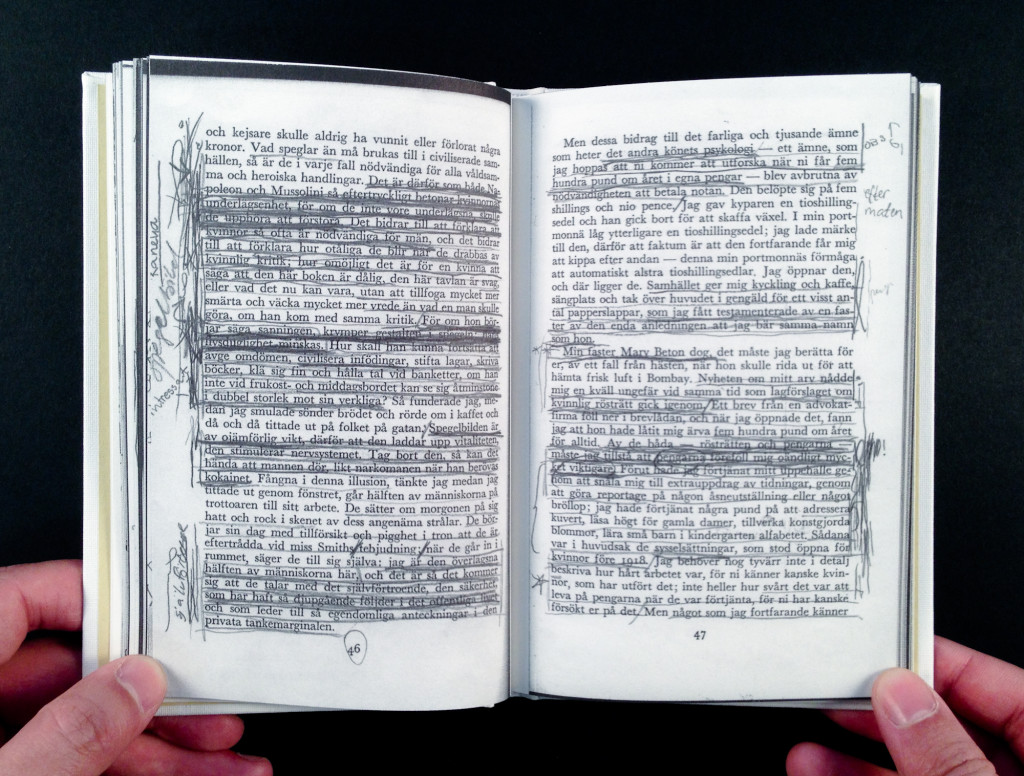 och kejsare skulle aldrig ha vunnit eller förlorat några
kronor. Vad speglar än må brukas till i civiliserade sam-
hällen, så är de i varje fall nödvändiga för alla våldsam-
ma och heroiska handlingar. Det är därför som både Na-
poleon och Mussolini så eftertryckligt betonar kvinnornas
underlägsenhet, för om de inte vore underlägsna skulle
de upphöra att förstora. Det bidrar till att förklara att
kvinnor så ofta är nödvändiga för män, och det bidrar
till att förklara hur otåliga de blir när de drabbas av
kvinnlig kritik, hur omöjligt det är för en kvinna att
säga att den här boken är dålig, den här tavlan är svag,
eller vad det nu kan vara, utan att tillfoga mycket mer
smärta och väcka mycket mer vrede än vad en man skulle
göra, om han kom med samma kritik. För om hon bör-
jar säga sanningen, krymper gestalten i spegeln, hans
livsduglighet minskas. Hur skall han kunna fortsätta att
avge omdömen, civilisera infödingar, stifta lagar, skriva
böcker, klä sig fin och hålla tal vid banketter, om han
inte vid frukost- och middagsbordet kan se sig åtminstone
i dubbel storlek mot sin verkliga? Så funderade jag, me-
dan jag smulade sönder brödet och rörde om i kaffet och
då och då tittade ut på folket på gatan. Spegelbilden är
av ojämförlig vikt, därför att den laddar upp vitaliteten,
den stimulerar nervsystemet. Tag bort den, så kan det
hända att mannen dör, likt narkomanen när han berövas
kokainet. Fångna i denna illusion, tänkte jag medan jag
tittade ut genom fönstret, går hälften av människorna på
trottoaren till sitt arbete. De sätter om morgonen på sig
hatt och rock i skenet av dess angenäma strålar. De bör-
jar sin dag med tillförsikt och pigghet i tron att de är
efterträdda vid miss Smiths tebjudning; när de går in i
rummet, säger de till sig själva: jag är den överlägsna
hälften av människorna här, och det är så det kommer
sig att de talar med det självförtroende, den säkerhet,
som har haft så djupgående följder i det offentliga livet
och som leder till så egendomliga anteckningar i den
privata tankemarginalen.
46
spegelbild
Men dessa bidrag till det farliga och tjusande ämne
som heter det andra könets psykologi — ett ämne, som
jag hoppas att ni kommer att utforska när ni får fem
hundra pund om året i egna pengar — blev avbrutna av
nödvändigheten att betala notan. Den belöpte sig på fem
shillings och nio pence. Jag gav kyparen en tioshilling-
sedel och han gick bort för att skaffa växel. I min port-
monnä låg ytterligare en tioshillingsedel; jag lade märke
till den, därför att faktum är att den fortfarande får mig
att kippa efter andan — denna min portmonnäs förmåga
att automatiskt alstra tioshillingsedlar. Jag öppnar den,
och där ligger de. Samhället ger mig kyckling och kaffe,
sängplats och tak över huvudet i gengäld för ett visst an-
tal papperslappar, som jag fått testamenterade av en fas-
ter av den enda anledningen att jag bär samma namn
som hon.
Min faster Mary Beton dog, det måste jag berätta för
er, av ett fall från hästen, när hon skulle rida ut för att
hämta frisk luft i Bombay. Nyheten om mitt arv nådde
mig en kväll ungefär vid samma tid som lagförslaget om
kvinnlig rösträtt gick igenom. Ett brev från en advokat-
firma föll ner i brevlådan, och när jag öppnade det, fann
jag att hon hade låtit mig ärva fem hundra pund om året
för alltid. Av de båda — rösträtten och pengarna —
måste jag tillstå att pengarna föreföll mig oändligt myc-
ket viktigare. Förut hade jag förtjänat mitt uppehälle ge-
nom att snåla mig till extrauppdrag av tidningar, genom
att göra reportage på någon åsneutställning eller något
bröllop; jag hade förtjänat några pund på att adressera
kuvert, läsa högt för gamla damer, tillverka konstgjorda
blommor, lära små barn i kindergarten alfabetet. Sådana
var i huvudsak de sysselsättningar, som stod öppna för
kvinnor före 1918. Jag behöver nog tyvärr inte i detalj
beskriva hur hårt arbetet var, för ni känner kanske kvin-
nor, som har utfört det; inte heller hur svårt det var att
leva på pengarna när de var förtjänta, för ni har kanske
försökt er på det. Men något som jag fortfarande känner
47
efter
maten